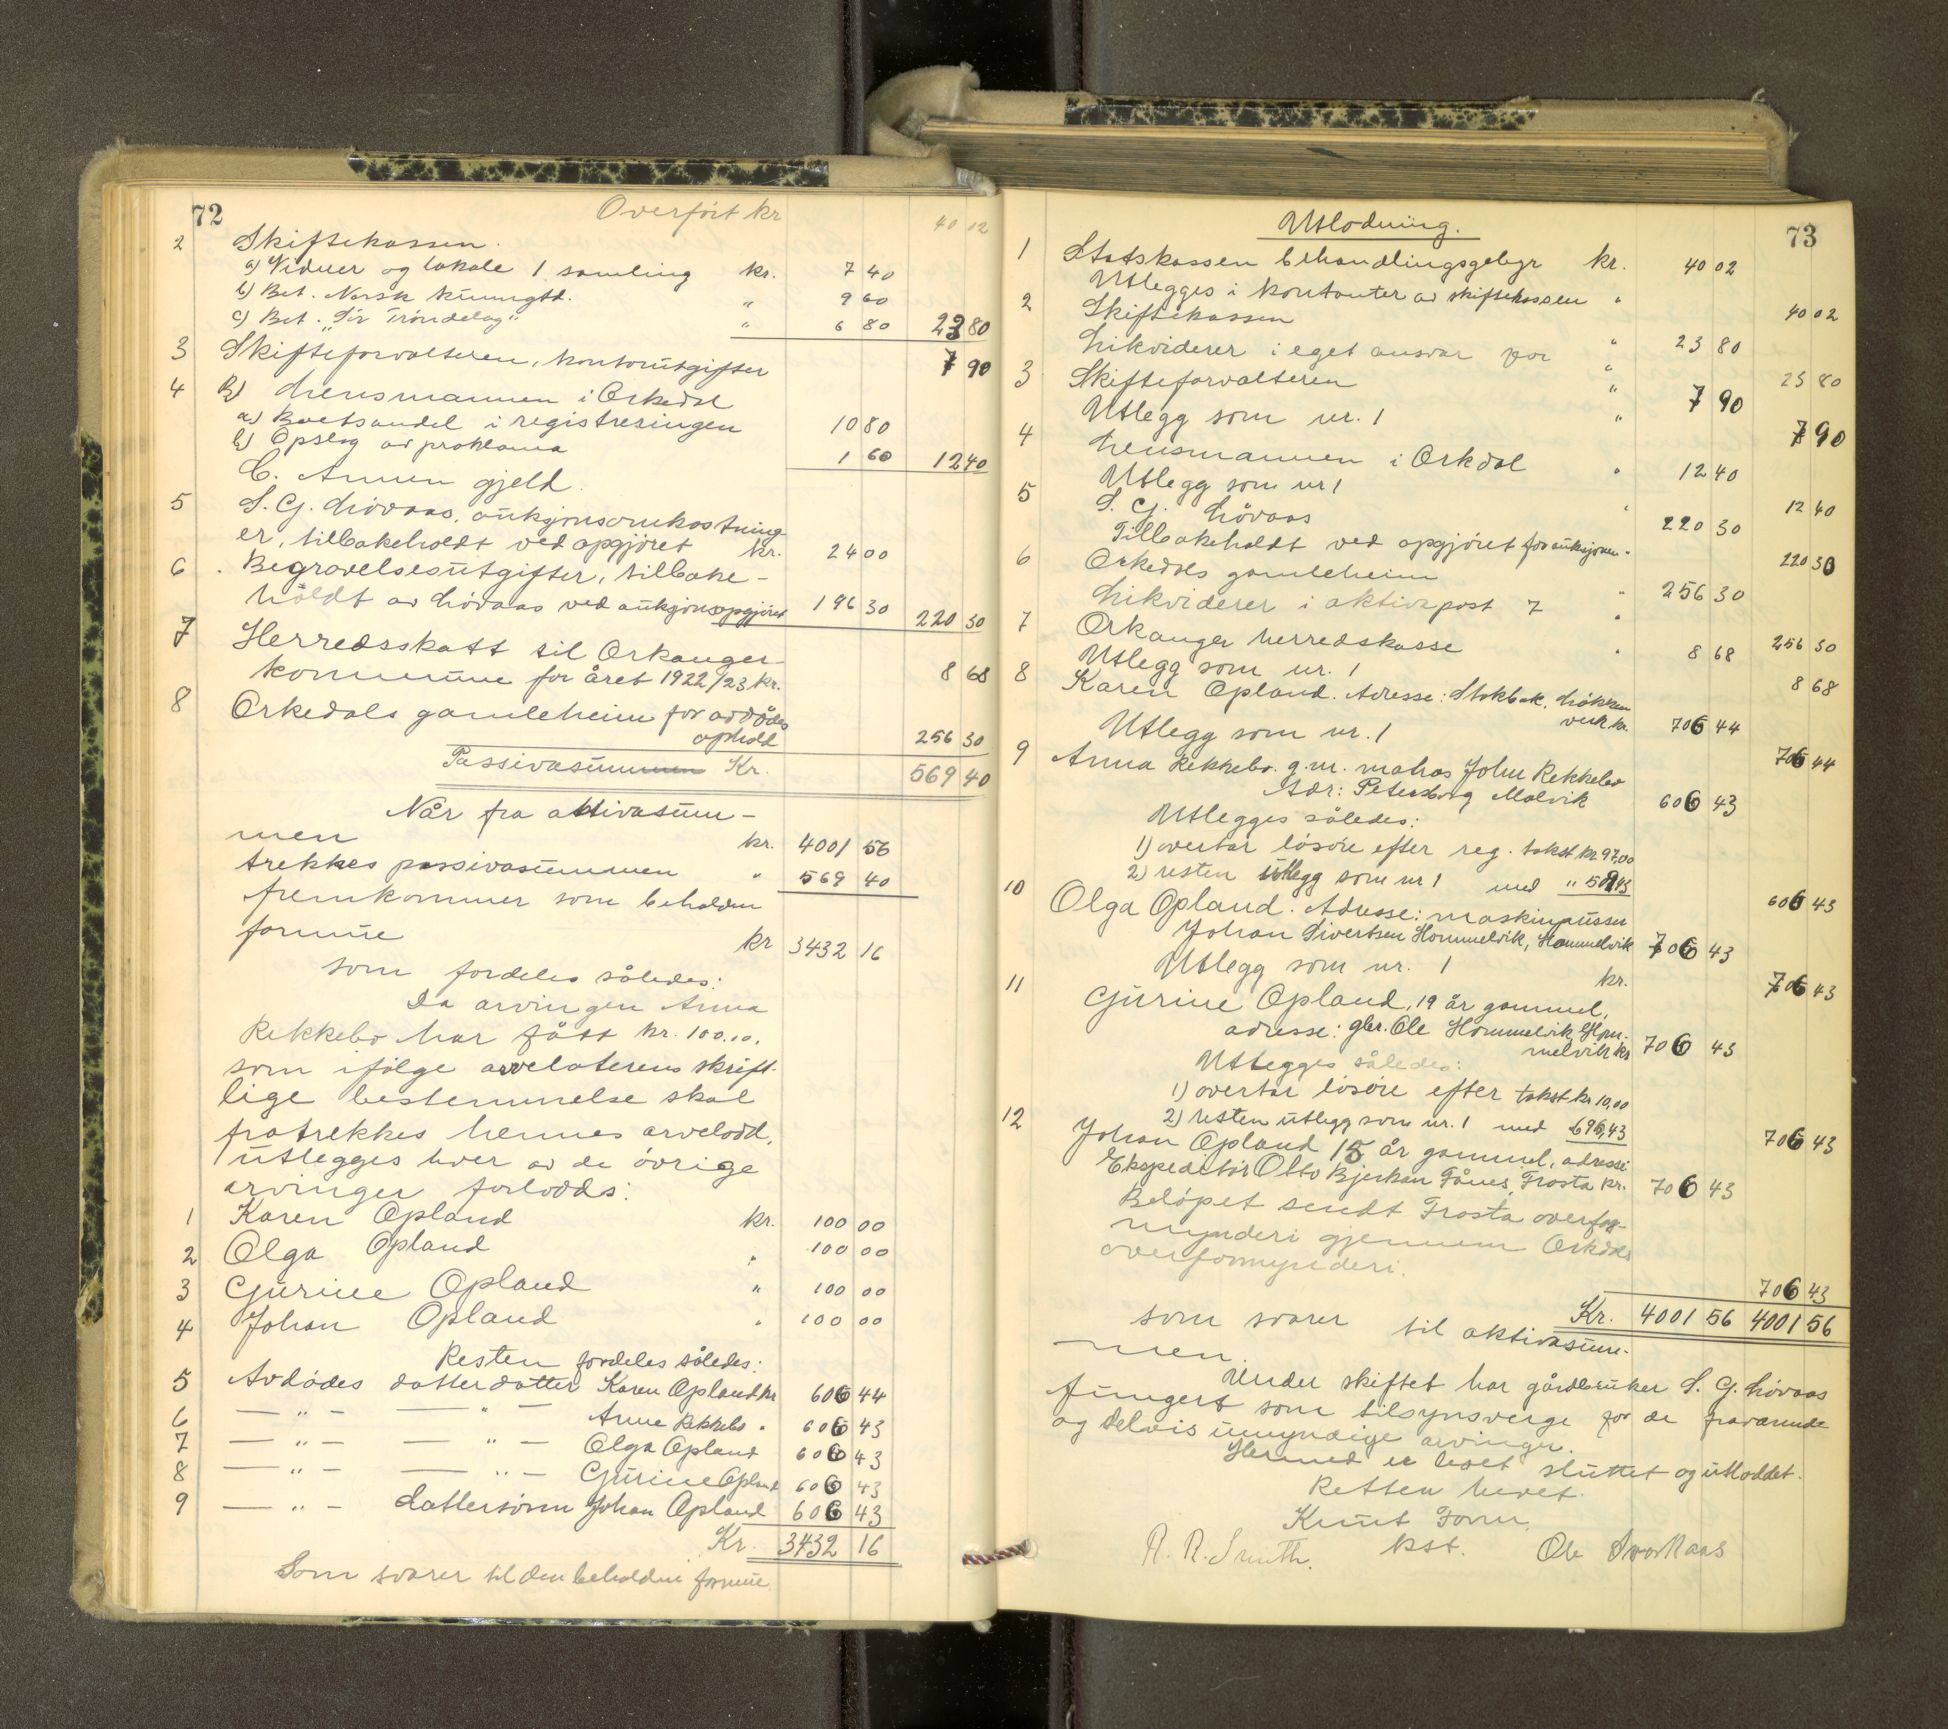 72
Overført kr 40 12
2 Skiftekassen.
a) Vidner og lokale 1 samling kr. 7 40
b) Bet. Norsk Kunngtd. " 9 60
c) Bet. "Sör Tröndelag" " 6 80 23 80
3 Skifteforvalteren, kontorutgifter 7 90
4 B) Lensmannen i Orkdal
a) Boetsandel i registreringen 10 80
b) Opslag av proklama 1 60 12 40
C. Annen gjeld.
5 S. G. Lövaas, aukjonsomkostning-
er, tilbakeholdt ved opgjöret kr. 24 00
6 Begravelsesutgifter, tilbake-
holdt av Lövaas ved aukjonsopgjöret 196 30 220 30
7 Herredsskatt til Orkanger
kommune for året 1922/23 kr. 8 68
8 Orkedals gamleheim for avdödes
ophold 256 30
Passivasummen Kr. 569 40
Når fra aktivasum-
men kr. 4001 56
trekkes passivasummen " 569 40
fremkommer som beholden
formue kr 3432 16
som fordeles således:
Da arvingen Anna
Rekkebo har fått kr. 100.00,
som ifølge arvelaterens skrift-
lige bestemmelse skal
fratrekkes hennes arvelodd,
utlegges hver av de övrige
arvinger forlodds:
1 Karen Opland kr. 100 00
2 Olga Opland " 100 00
3 Gurine Opland " 100 00
4 Johan Opland " 100 00
Resten fordeles således:
5 Avdödes datterdatter Karen Opland kr 606 44
6 — " — — " — Anne Rekkebo " 606 43
7 — " — — " — Olga Opland 606 43
8 — " — — " — Gurine Opland 606 43
9 — " — dattersönn Johan Opland 606 43
Kr. 3432 16
Som svarer til den beholdne formue.
73
Utlodning.
1 Statskassen behandlingsgebyr kr. 40 02
Utlegges i kontanter av skiftekassen " 40 02
2 Skiftekassen " 23 80
Likviderer i eget ansvar for " 23 80
3 Skifteforvalteren " 7 90
Utlegg som nr. 1 " 7 90
4 Lensmannen i Orkdal " 12 40
Utlegg som nr 1 " 12 40
5 S. G. Lövaas 220 30
Tilbakeholdt ved opgjöret for auksjonen " 220 30
6 Orkedals gamleheim " 256 30
Likviderer i aktivapost 7 " 256 30
7 Orkanger herredskasse " 8 68
Utlegg som nr. 1 8 68
8 Karen Opland. Adresse: Stokbak, Lökken
verk kr. 706 44
Utlegg som nr. 1 706 44
9 Anna Rekkebo. g.m. matros John Rekkebo
Adr: Petersborg Malvik 606 43
Utlegges således:
1) overtar lösöre efter reg. takst kr 97,00
2) resten utlegg som nr 1 med " 509,43
606 43
10 Olga Opland. Adresse: maskinpusser
Johan Sivertsen Hommelvik, Hommelvik 706 43
Utlegg som nr. 1 kr. 706 43
11 Gurine Opland, 19 år gammel,
adresse: gbr. Ole Hommelvik, Hom-
melvik kr 706 43
Utlegges således:
1) overtar lösöre efter takst kr 10,00
2) resten utlegg som nr. 1 med 696,43
706 43
12 Johan Opland 15 år gammel, adresse:
Ekspeditör Otto Bjerkan Fånes, Frosta kr. 706 43
Belöpet sendt Frosta overfor-
mynderi gjennem Orkdals
overformynderi.
706 43
Kr. 4001 56 4001 56
som svarer til aktivasum-
men.
Under skiftet har gårdbruker S. G. Lövaas
fungert som tilsynsverge for de fraværende
og delvis umyndige arvinger.
Hermed er boet sluttet og utloddet.
Retten hevet.
Knut Forr
kst.
R. R. Smith. Ole Svorkaas